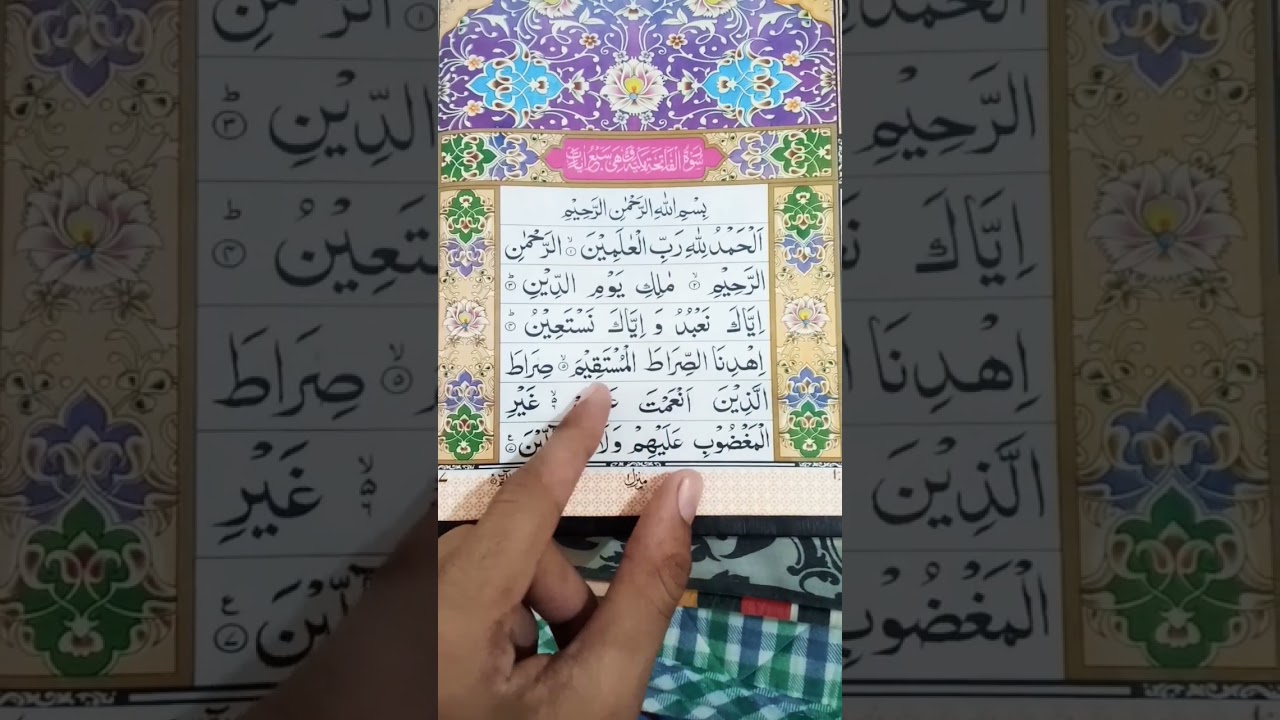 سُوْرَةُ الْفَاتِحَةِ مَكِّيَّةٌ وَّهِيَ سَبْعُ اٰيَاتٍ
بِسْمِ اللّٰهِ الرَّحْمٰنِ الرَّحِيْمِ
اَلْحَمْدُ لِلّٰهِ رَبِّ الْعٰلَمِيْنَ ۙ‏﴿۱﴾ الرَّحْمٰنِ
الرَّحِيْمِ ۙ‏﴿۲﴾ مٰلِكِ يَوْمِ الدِّيْنِ ؕ‏﴿۳﴾
اِيَّاكَ نَعْبُدُ وَ اِيَّاكَ نَسْتَعِيْنُ ؕ‏﴿۴﴾
اِهْدِنَا الصِّرَاطَ الْمُسْتَقِيْمَ ۙ‏﴿۵﴾ صِرَاطَ
الَّذِيْنَ اَنْعَمْتَ غَيْرِ
الْمَغْضُوْبِ عَلَيْهِمْ وَلَا ﴿۷﴾
منزل